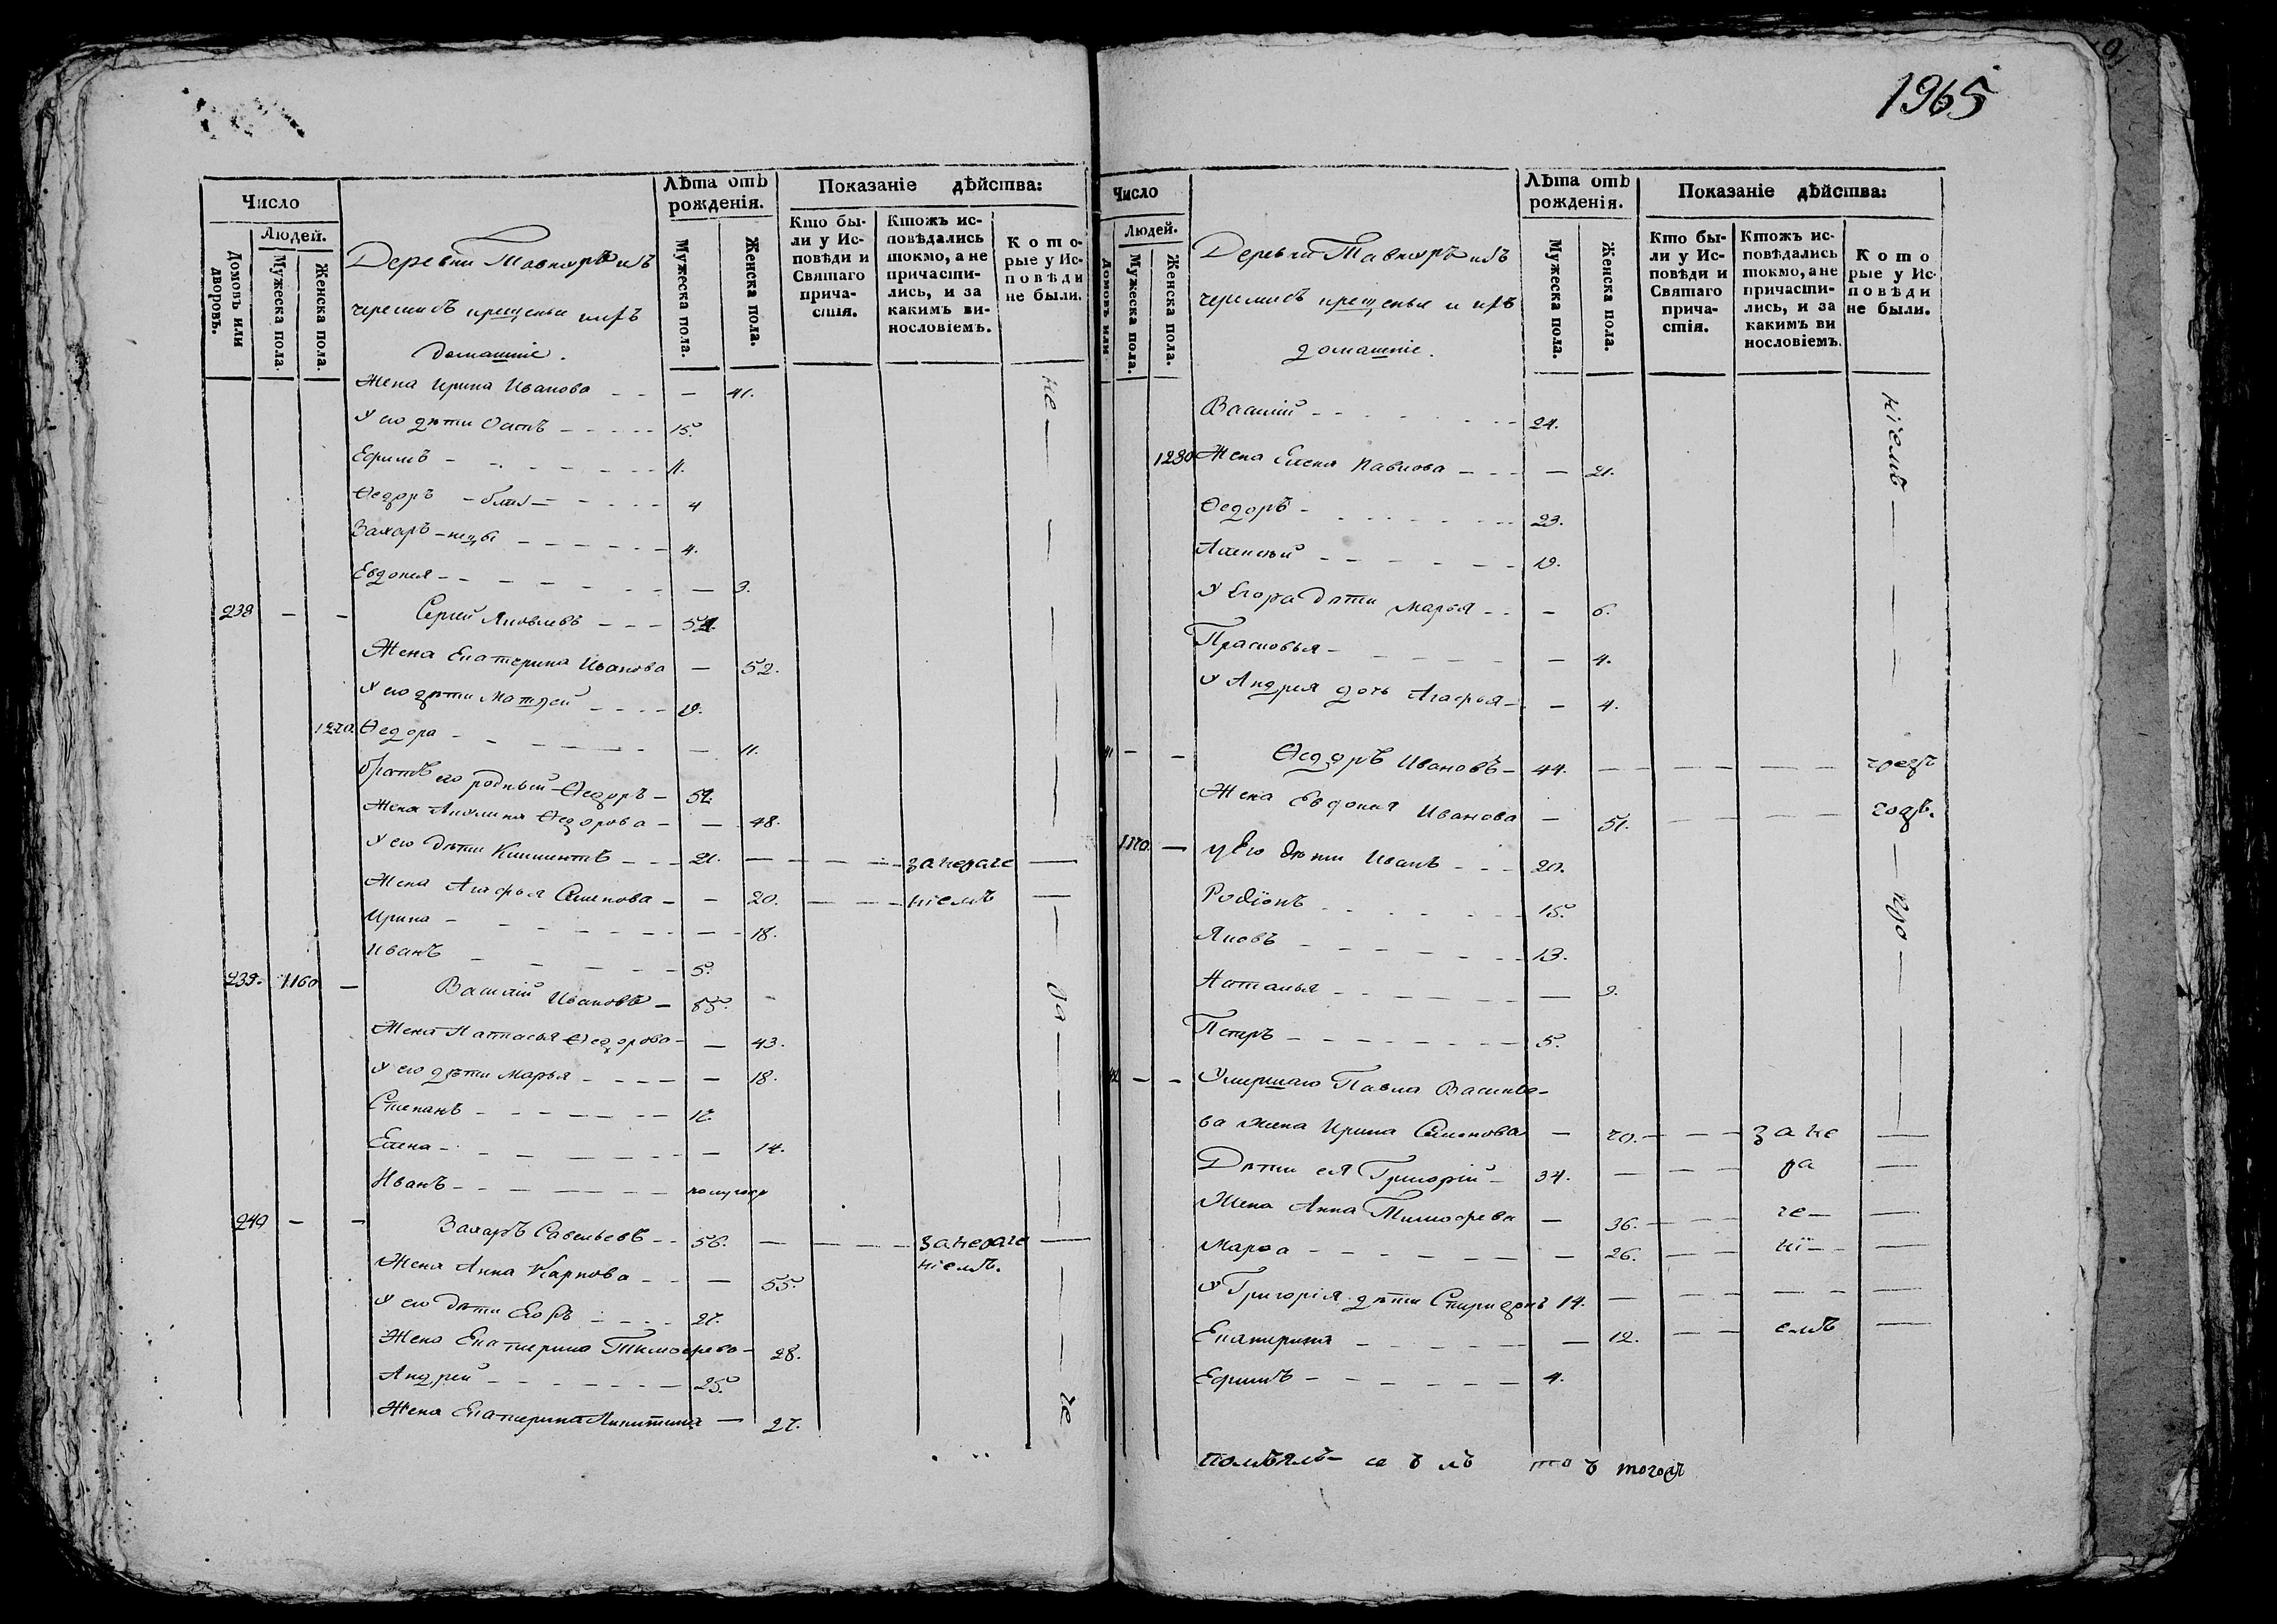 1965
Число
Людей.
Домовъ или дворовъ.
Мужеска пола.
Женска пола.
Деревни
черемисъ крещеные ихъ
домашніе.
Лѣта отъ рожденія.
Мужеска пола.
Женска пола.
Показаніе дѣйства:
Кто бы-
ли у Ис-
повѣди и
Святаго
прича-
стія.
Ктожъ ис-
повѣдались
токмо, а не
причасти-
лись, и за
какимъ ви-
нословіемъ.
Кото-
рые у Ис-
повѣди
не были.
Жена Ирина Иванова - - — 41.
У его дѣти Осипъ - - - - - 15.
Ефимъ - - - - - - - 11.
Ѳедоръ - близ- - - - - 4
Захаръ - нецы - - - - - - 4.
Евдокея - - - - - - — 3.
238 — — Сергей Яковлевъ - - - 54.
Жена Екатерина Иванова — 52.
У его дѣти Матвей - - - - 19.
1220. Ѳедора - - - - - - — 11.
братъ его родный Ѳедоръ — 52.
Жена Акулина Ѳедорова — — 48.
У его дѣти Климентъ - - - 21. — — — — занераче —
Жена Агафья Семенова — — 20. — — — ніемъ —
Ирина - - - - - - — 18.
Иванъ - - - - - 5.
239. 1160 — Василій Ивановъ — 55.
Жена Настасья Ѳедорова — — 43.
У его дѣти Марья - - - - — 18.
Степанъ - - - - - - 17.
Елена - - - - - - — 14.
Иванъ - - - - - - полугода
240 — — Захаръ Савельевъ - - 56. — — — — занераче —
ніемъ.
Жена Анна Карпова - - — 55.
У его дѣти Егоръ - - - - 27.
Жена Екатерина Тимофеева — 28.
Андрей - - - - - - - 25.
Жена Екатерина Никитина — 27.
не
ра
че
Число
Людей.
Домовъ или
Мужеска пола.
Женска пола.
Деревни
черемисъ крещеные и ихъ
домашніе.
Лѣта отъ рожденія.
Мужеска пола.
Женска пола.
Показаніе дѣйства:
Кто бы-
ли у Ис-
повѣди и
Святаго
прича-
стія.
Ктожъ ис-
повѣдались
токмо, а не
причасти-
лись, и за
какимъ ви
нословіемъ.
Кото
рые у Ис-
повѣди
не были.
Василій - - - - - - - 24.
1230 Жена Елена Павлова - - - — 21.
Ѳедоръ - - - - - - - 23.
Алексѣй - - - - - - 19.
У Егора дѣти Марья - - — 6.
Прасковья - - - - - — 4.
У Андрея дочь Агафья — — 4.
41 — — Ѳедоръ Ивановъ — 44. — — — —
Жена Евдокея Иванова — 51. — — — —
1170. — У его дѣти Иванъ - - - 20.
Родіонъ - - - - - - 15.
Яковъ - - - - - - 13.
Наталья - - - - - - — 9.
Петръ - - - - - - - 5.
42 — — Умершаго Павла Василье-
ва жена Ирина Семенова — 70. — — — зане —
Дѣти ея Григорій — 34. — — — ра —
Жена Анна Тимофеева — 36. — — че — —
Марфа - - - - - - — 26. — — ні — —
У Григорія дѣти Спиридонъ 14. — — — — —
Екатерина - - - - - — 12. — — емъ —
Ефимъ - - - - - - 4.
ніемъ